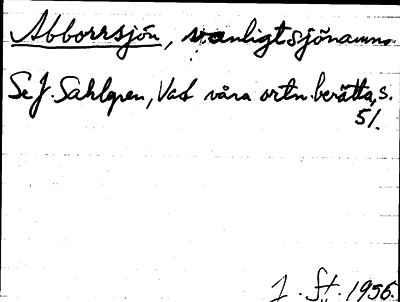 Abborrsjön, vanligt sjönamn.
Se J. Sahlgren, Vad våra ortn. berätta, s.
51.
1956.